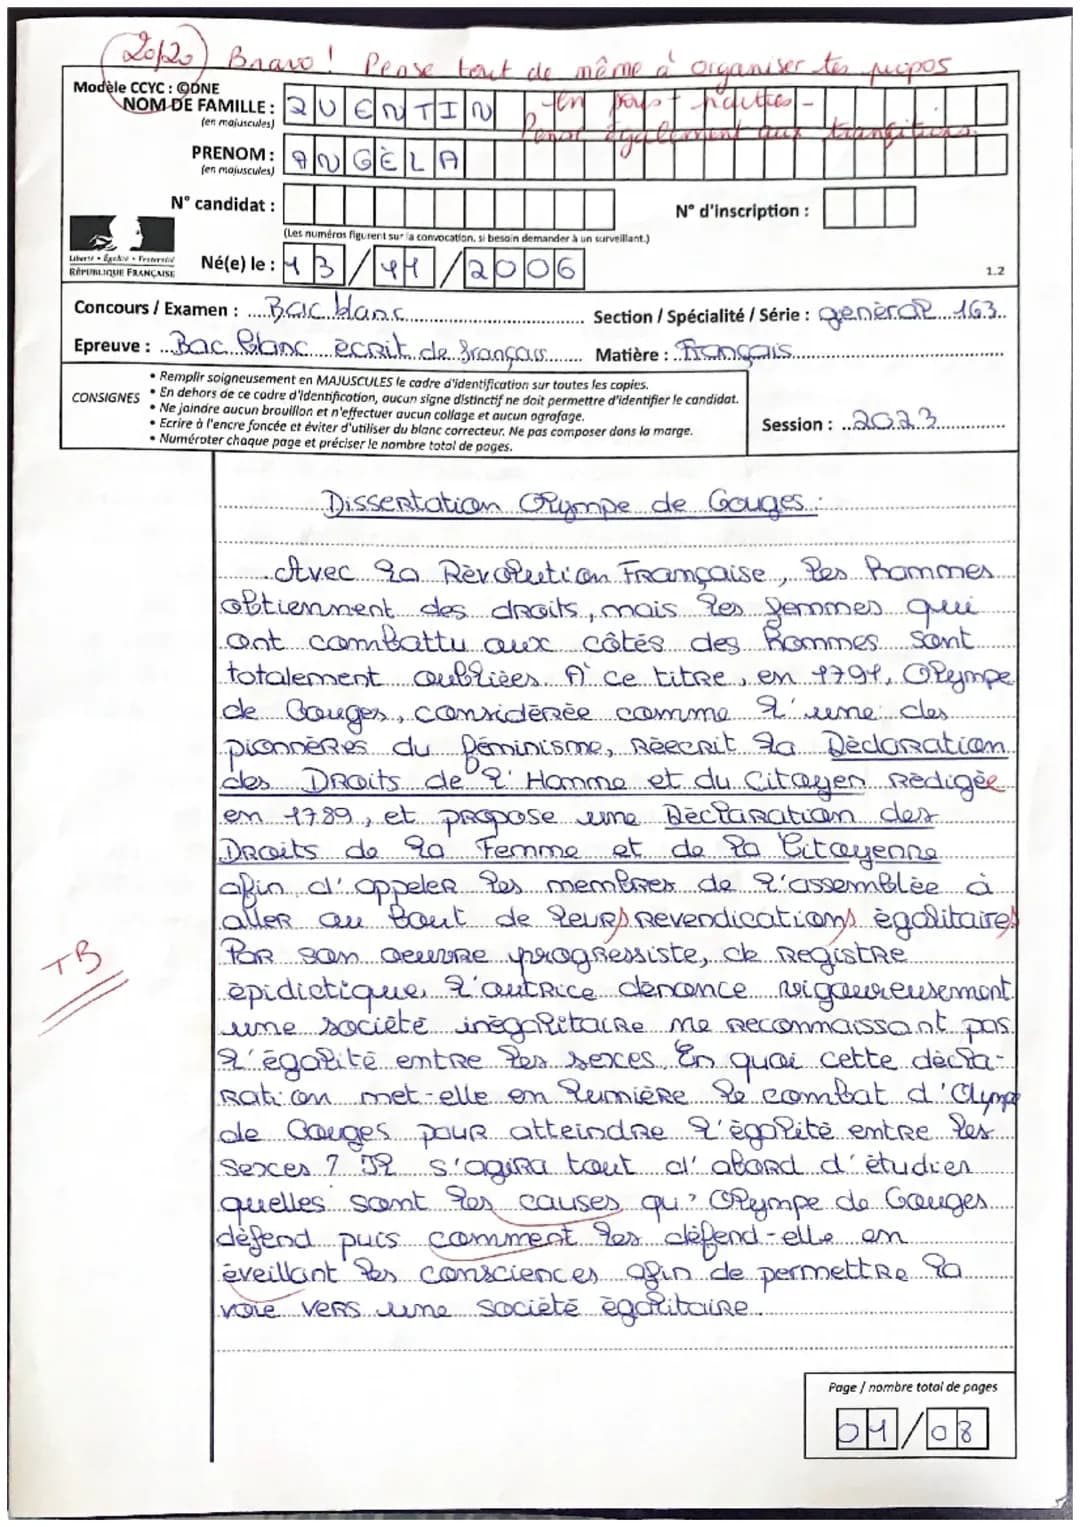 20/20 Bravo ! Pense tout de même à organiser tes propos
Modèle CCYC : ©DNE
NOM DE FAMILLE : QUENTIN
(en majuscules)
en
Pense également aux transitions.
PRENOM : ANGÈLA
(en majuscules)
N° candidat :
N° d'inscription :
(Les numéros figurent sur la convocation, si besoin demander à un surveillant.)
Liberté • Égalité • Fraternité
RÉPUBLIQUE FRANÇAISE
Né(e) le : 13/11/2006
1.2
Concours / Examen : Bac blanc
Section / Spécialité / Série : général 1G3
Epreuve : Bac blanc écrit de français
Matière : Français
CONSIGNES
• Remplir soigneusement en MAJUSCULES le cadre d'identification sur toutes les copies.
• En dehors de ce cadre d'identification, aucun signe distinctif ne doit permettre d'identifier le candidat.
• Ne joindre aucun brouillon et n'effectuer aucun collage et aucun agrafage.
• Ecrire à l'encre foncée et éviter d'utiliser du blanc correcteur. Ne pas composer dans la marge.
• Numéroter chaque page et préciser le nombre total de pages.
Session : 2023
Dissertation Olympe de Gouges :
Avec la Révolution Française, les hommes
obtiennent des droits, mais les femmes qui
ont combattu aux côtés des hommes sont
totalement oubliées. A ce titre, en 1791, Olympe
de Gouges, considérée comme l'une des
pionnères du féminisme, réecrit la Déclaration
des Droits de l'Homme et du Citoyen rédigée
en 1789, et propose une Déclaration des
Droits de la Femme et de la Citoyenne
afin d'appeler les membres de l'assemblée à
aller au bout de leurs revendications égalitaires
Par son oeuvre progressiste, de registre
épidictique, l'autrice dénonce vigoureusement
TB
une société inégalitaire ne reconnaissant pas
l'égalité entre les sexes. En quoi cette décla-
ration met-elle en lumière le combat d'Olympe
de Gouges pour atteindre l'égalité entre les
sexes ? Il s'agira tout d'abord d'étudier
quelles sont les causes qu'Olympe de Gouges
défend puis comment les défend-elle en
éveillant les consciences afin de permettre la
voie vers une société égalitaire.
Page / nombre total de pages
01/08